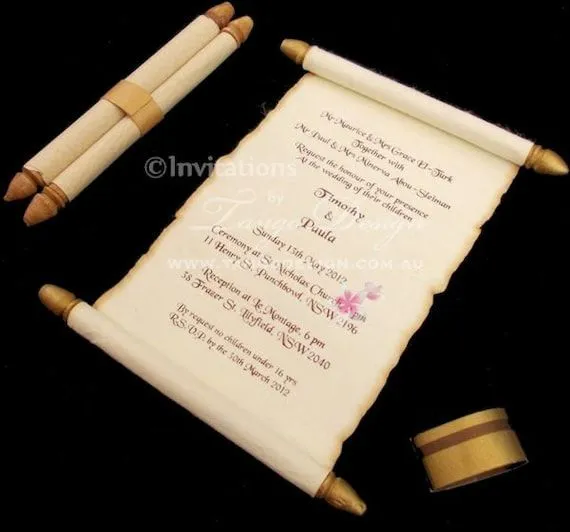 Mr Maurice & Mrs Grace El-Turk
Together with
Mr Paul & Mrs Minerva Abou-Sleiman
Request the honour of your presence
At the wedding of their children
Timothy
&
Paula
Sunday 13th May 2012
Ceremony at St Nicholas Church, pm
11 Henry St, Punchbowl, NSW 2196
Reception at Le Montage, 6 pm
38 Frazer St, Lilyfield, NSW 2040
By request no children under 16 yrs
R.S.D.P. by the 30th March 2012
©Invitations
by
Tango Design
WWW.TANGODESIGN.COM.AU